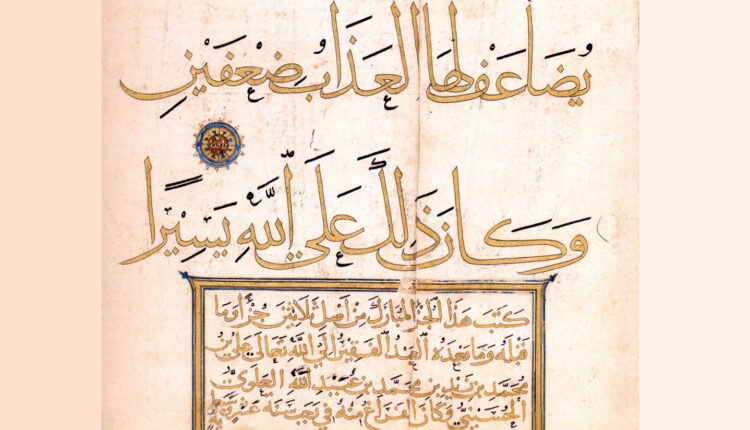 يُضَاعَفْ لَهَا الْعَذَابُ ضِعْفَيْنِ
وَكَانَ ذَلِكَ عَلَى اللَّهِ يَسِيرًا
كتب هذا الجزء المبارك من أصل ثلاثين جزءا وما
قبله وما بعده العبد الفقير إلى الله تعالى علي بن
محمد بن زيد بن محمد بن عبيد الله العلوي
الحسيني وكان الفراغ منه في رجب سنة عشر